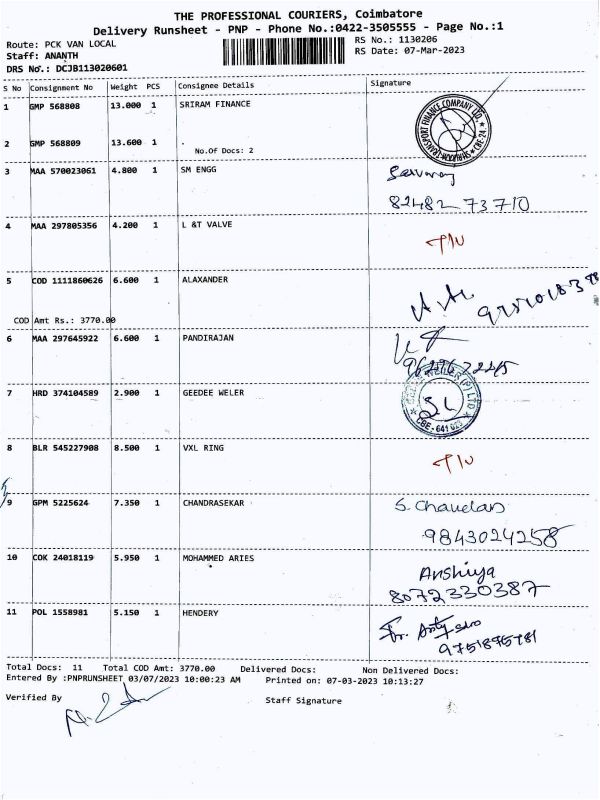 THE PROFESSIONAL COURIERS, Coimbatore
Delivery Runsheet - PNP - Phone No.:0422-3505555 - Page No.:1
Route: PCK VAN LOCAL
RS No.: 1130206
Staff: ANANTH
RS Date: 07-Mar-2023
DRS No.: DCJB113020601
S No Consignment No Weight PCS Consignee Details Signature
1 GMP 568808 13.000 1 SRIRAM FINANCE
2 GMP 568809 13.600 1 .
No.Of Docs: 2
3 MAA 570023061 4.800 1 SM ENGG
82482 73710
4 MAA 297805356 4.200 1 L &T VALVE
5 COD 1111860626 6.600 1 ALAXANDER
COD Amt Rs.: 3770.00
6 MAA 297645922 6.600 1 PANDIRAJAN
7 HRD 374104589 2.900 1 GEEDEE WELER
CBE - 641 023
8 BLR 545227908 8.500 1 VXL RING
9 GPM 5225624 7.350 1 CHANDRASEKAR
9843024258
10 COK 24018119 5.950 1 MOHAMMED ARIES
Arshiya
8072330387
11 POL 1558981 5.150 1 HENDERY
Total Docs: 11 Total COD Amt: 3770.00 Delivered Docs: Non Delivered Docs:
Entered By :PNPRUNSHEET 03/07/2023 10:00:23 AM Printed on: 07-03-2023 10:13:27
Verified By
Staff Signature